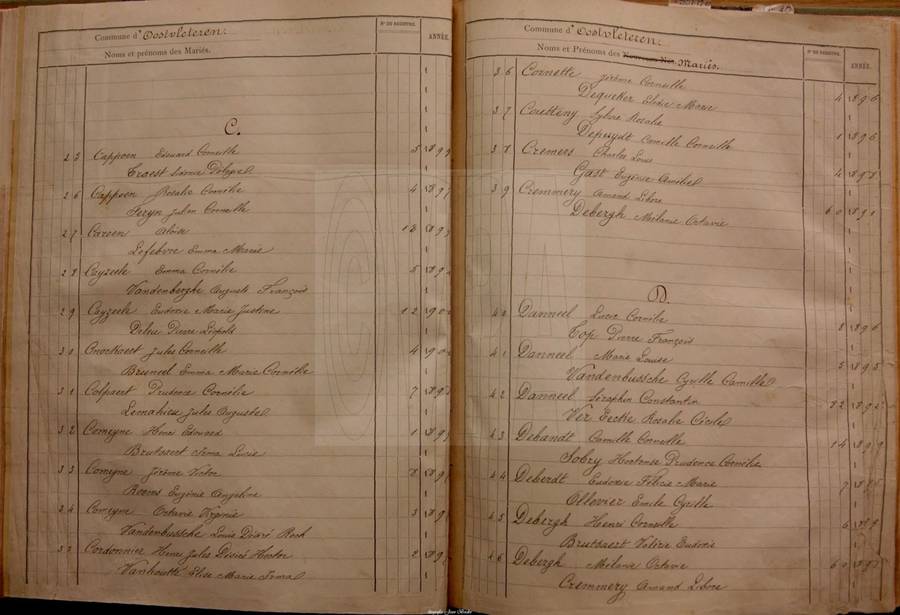 Commune d' Oostvleteren.
Noms et prénoms des Mariés.
N° DU REGISTRE.
ANNÉE.
C.
25 Cappoen Edouard Corneille 5
Ernest
26 Cappoen Rosalie Cornélie 4
Feryn Julien Corneille
27 Caroen Aloïse 13
Lefebvre Emma Marie
28 Cayzeele Emma Cornélie 5
Vandenberghe Auguste François
29 Cayzeele Eudoxie Marie Justine 12
Deleu Pierre Léopold
30 Cnockaert Jules Corneille 4
Bruneel Emma Marie Cornélie
31 Colpaert Prudence Cornélie 7
Lemahieu Jules Auguste
32 Comeyne Henri Edouard 1
Brutsaert Irma Lucie
33 Comeyne Jérôme Victor 8
Reems Eugénie Angeline
34 Comeyne Octavie Virginie 3
Vandenbussche Louis Désiré Roch
35 Cordonnier Henri Jules Désiré Hector 2
Vanhoutte Elise Marie
Commune d' Oostvleteren.
Noms et Prénoms des Mariés.
N° DU REGISTRE.
ANNÉE.
36 Cornette Jérôme Corneille
Dequeker Elodie Marie 4 1896
37 Coutteny Sylvie Rosalie
Depuydt Camille Corneille 1 1896
38 Cremers Charles Louis
Gast Eugénie Amélie 4
39 Cremmery Amand Libore
Debergh Mélanie Octavie 60 1891
D.
40 Danneel Lucie Cornélie
Top Pierre François 8 1896
41 Danneel Marie Louise
Vandenbussche Cyrille Camille 5 1895
42 Danneel Séraphin Constantin
Ver Eecke Rosalie Cécile 22 1892
43 Debandt Camille Corneille
Sobry Hortense Prudence Cornélie 14 1899
44 Deberdt Eudoxie Félicie Marie
Ollevier Emile Cyrille 7
45 Debergh Henri Corneille
Brutsaert Valérie Eudoxie 6
46 Debergh Mélanie Octavie
Cremmery Amand Libore 60